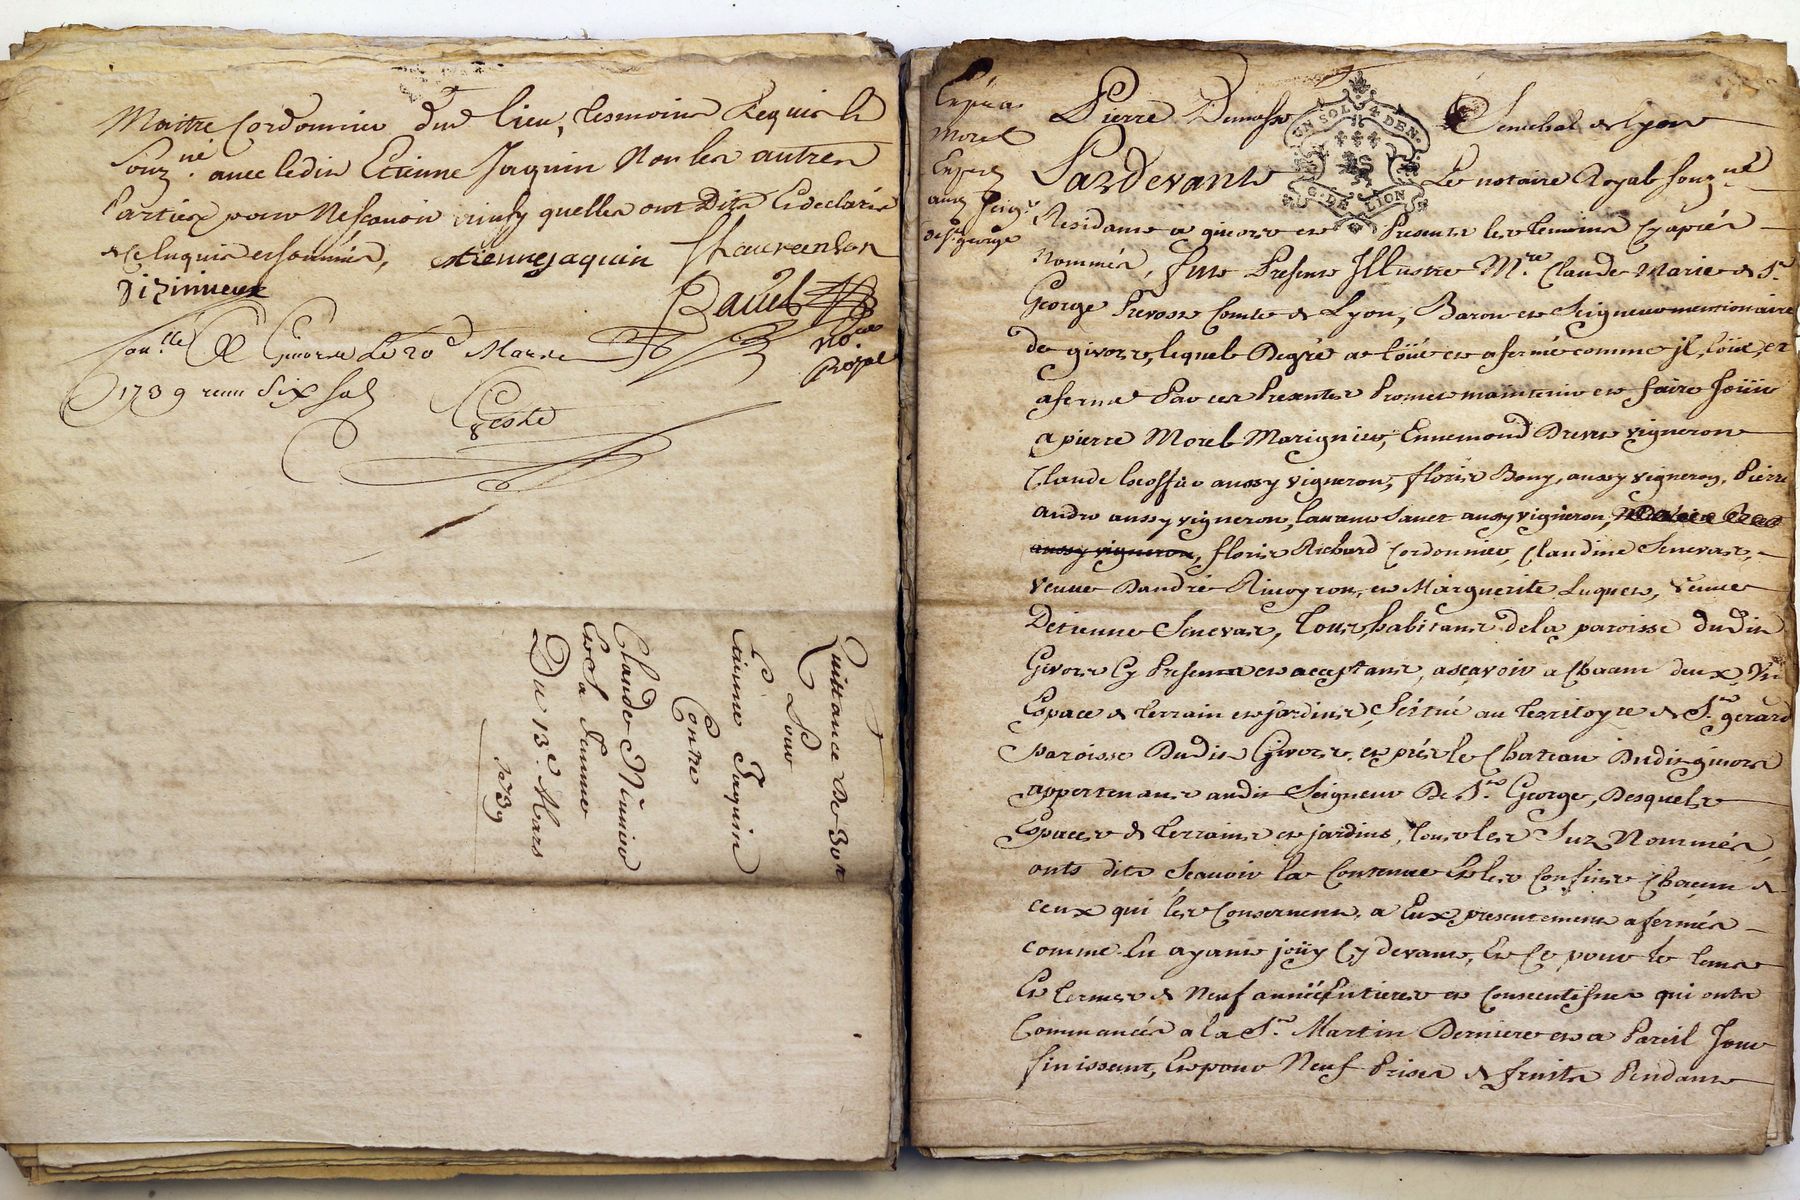 Maitre Cordonnier dud lieu, tesmoins Requis et
Souz.né avec ledit Etienne Jaquin Non les autres
Parties pour ne sçavoir ainsy quelles ont Dit et declaré
de ce Enquis et sommés, estienne jaquin
Ravel
no.re
Royal
Con.lle à Givors Le 20e Mars
1739 reçu Six sols
Quittance de 30#
Pour
Etienne Jaquin
Contre
Claude
et sa femme
Du 13e. Mars
1739
Morel
aux Seig.r
de St george
Pierre Senechal de Lyon
UN SOL 4 DEN.
G. DE LION
Pardevant Le notaire Royal souz.né
Residant a givors et Presents les temoins cy après
Nommés, fut Present Illustre M.re Claude Marie de St.
George Prevost Comte de Lyon, Baron et Seigneur mentionaire
de givors, lequel Degré a loüé et afermé comme il loüe, et
aferme Par ces Presentes Promet maintenir et faire Joüir
a pierre Morel Marignier, Ennemond Drevet vigneron
Claude aussy vigneron, floris Bony, aussy vigneron, Pierre
andre aussy vigneron, laurent aussy vigneron,
aussy vigneron, floris Richard Cordonnier, Claudine Senevas,
veuve Dandré Rivoyron, et Marguerite Luquet, veuve
Detienne Senevas, tous habitans de la paroisse dudit
Givors Cy Presents et acceptant, ascavoir a Chacun deux, Un
Espace de terrain et jardins, Scitué au territoyre de St. gerard
paroisse Dudit Givors et près le Chateau Dudit givors
appartenant audit Seigneur De St. George, Desquels
Espaces de terrains et jardins, tous les Sus Nommés,
onts dit Scavoir la Contenue et les Confins Chacun de
ceux qui les Conservent, a Eux presentement afermés
comme En ayant joüy Cy devant, Et Ce pour le tems
Et termes de Neuf années Entieres et Consecutives qui onts
Commancées a la St. Martin Derniere et a Pareil Jour
finissant, Et pour Neuf Prises de fruits Pendant